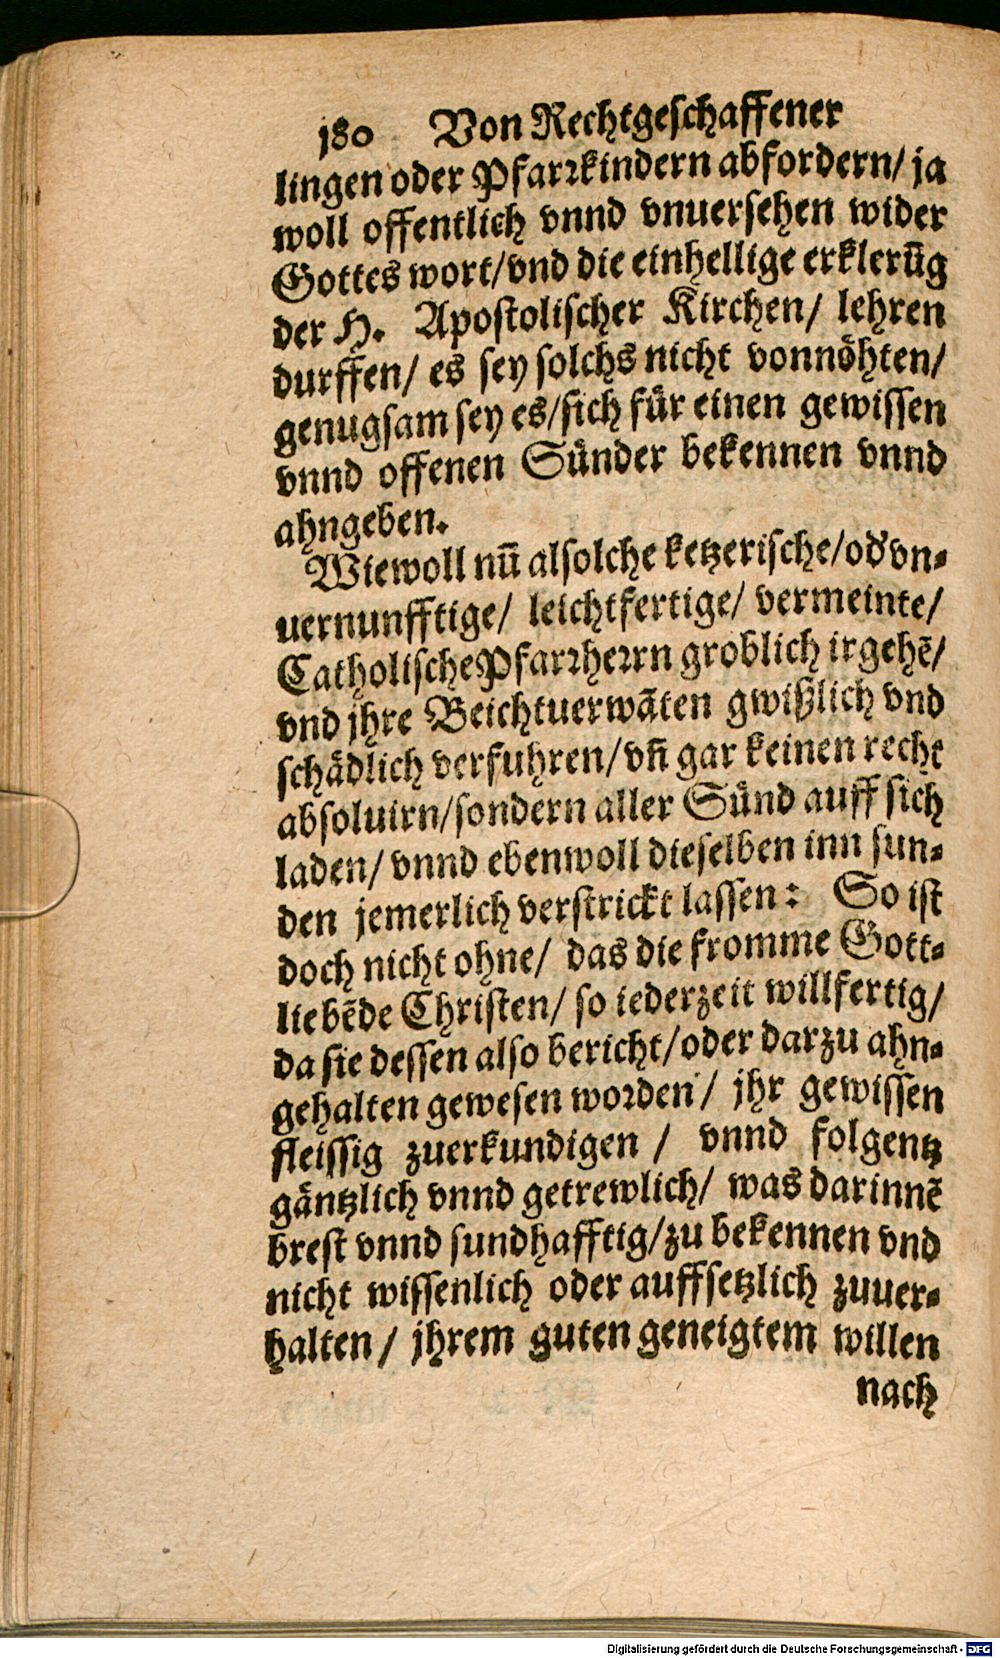 180 Von Rechtgeschaffener
lingen oder Pfarrkindern abfordern/ ja
woll offentlich vnnd vnuersehen wider
Gottes wort/vnd die einhellige erklerūg
der H. Apostolischer Kirchen/ lehren
durffen/ es sey solchs nicht vonnöhten/
genugsam sey es/sich für einen gewissen
vnnd offenen Sünder bekennen vnnd
ahngeben.
Wiewoll nū alsolche ketzerische/od' vn-
uernunfftige/ leichtfertige/ vermeinte/
Catholische Pfarrherrn groblich irgehē/
vnd jhre Beichtuerwāten gwißlich vnd
schädlich verfuhren/vn̄ gar keinen recht
absoluirn/sondern aller Sünd auff sich
laden/ vnnd ebenwoll dieselben inn sun-
den jemerlich verstrickt lassen: So ist
doch nicht ohne/ das die fromme Gott-
liebēde Christen/ so iederzeit willfertig/
da sie dessen also bericht/oder darzu ahn-
gehalten gewesen worden/ jhr gewissen
fleissig zuerkundigen / vnnd folgentz
gäntzlich vnnd getrewlich/ was darinnē
brest vnnd sundhafftig/zu bekennen vnd
nicht wissenlich oder auffsetzlich zuuer-
halten/ jhrem guten geneigtem willen
nach
Digitalisierung gefördert durch die Deutsche Forschungsgemeinschaft - DFG